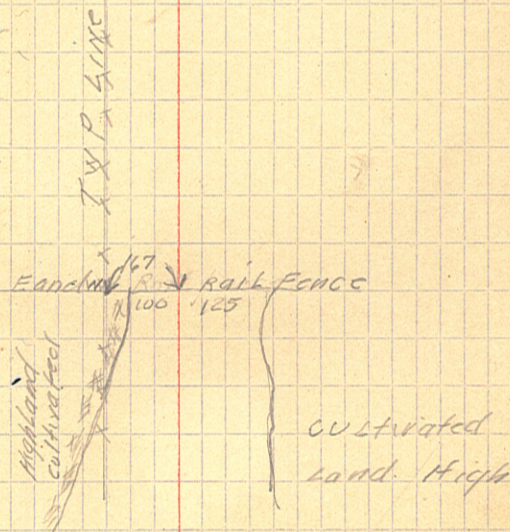 TWP LINE
167
E and W Rail Fence
100 125
Highland
cultivated
cultivated
Land. High